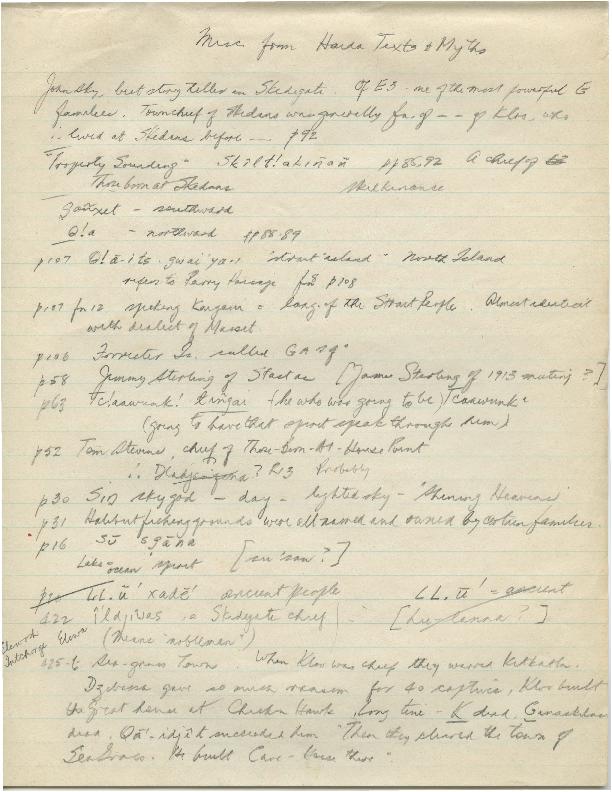 Misc from Haida Texts & Myths
John Sky, best story teller in Skidegate. Of E3 - one of the most powerful E
families. Town chief of Skedans was generally fa. of -- of Kloo, who
∴ lived at Skedans before --- p92
"Property Sounding" Skîlt!akîñañ pp86,92 A chief of
Those born at Skedans
- southward
Q!a - northward pp88-89
p107 "strait island" North Island
refers to Parry Passage fn8 p108
p107 fn 12 speaking Kaigani = lang. of the Strait People. Almost identical
with dialect of Masset
p106 Forrester Is. called
p58 Jimmy Sterling of Stastas [James Sterling of 1913 meeting?]
p63 (he who was going to be)
(going to have that spirit speak through him)
p52 Tom Stevens, chief of Those-born-at-House Point
∴ ? R13 Probably
p30 Sîñ sky god - day - lighted sky - "Shining Heavens"
p31 Halibut fishing grounds were all named and owned by certain families.
p16 Sū sgāna
Lake = ocean spirit [su'san?]
LL.ū' xadē' ancient people LL.ū' = ancient
422 î'ldjiwas, a Skidegate chief
(means "noblemen")
425-6 Sea-grass Town. When Kloo was chief they warred Kitkatla.
gave so much ransom for 40 captives, Kloo built
the great house at Chicken Hawk, long time - K died,
died. succeeded him "Then they started the town of
Sea Grass. He built Cave-House there"